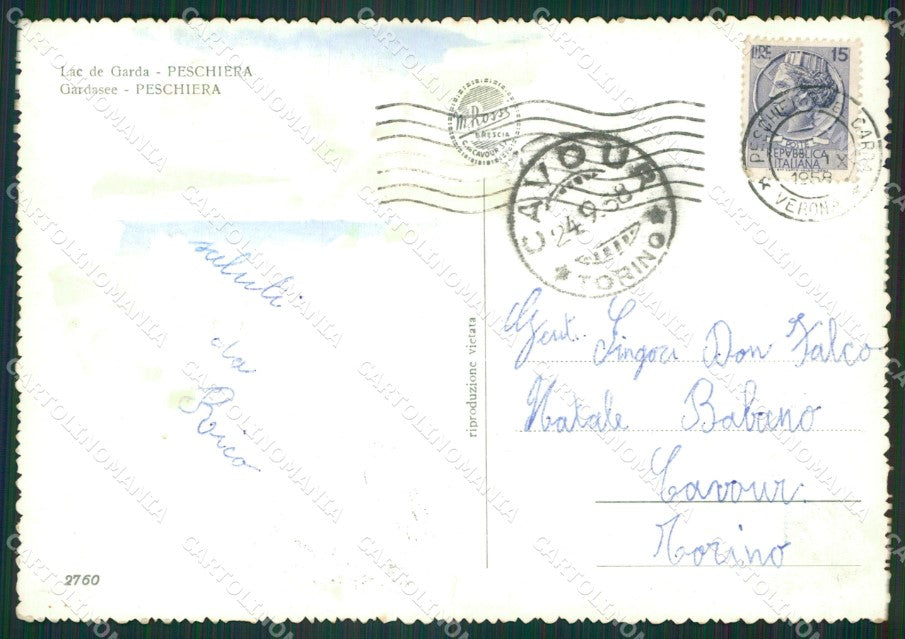 Lac de Garda - PESCHIERA
Gardasee - PESCHIERA
M. Rossi
BRESCIA
C. CAVOUR
CAVOUR
24.9.58
TORINO
LIRE 15
POSTE
REPVBBLICA
ITALIANA
PESCHIERA GARDA
IX
1958
VERONA
saluti
da
Rico
riproduzione vietata
Gent. Singor Don Falco
Natale Babano
Cavour.
Torino
2760
CARTOLINOMANIA